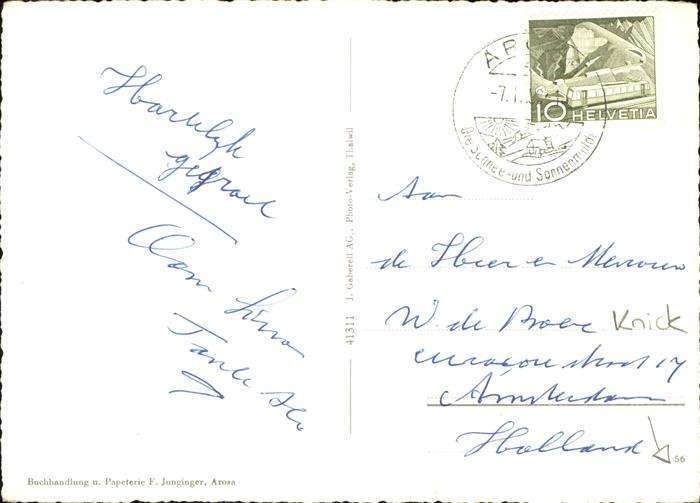 Hartelijk
gegroet
Oom
Tante
41311 J. Gaberell AG., Photo-Verlag, Thalwil
-7.1.
Die Schnee- und Sonnenmulde
10 HELVETIA
Aan
de Heer en Mevrouw
W. de Boer Knick
straat 17
Amsterdam
Holland
56
Buchhandlung u. Papeterie F. Junginger, Arosa